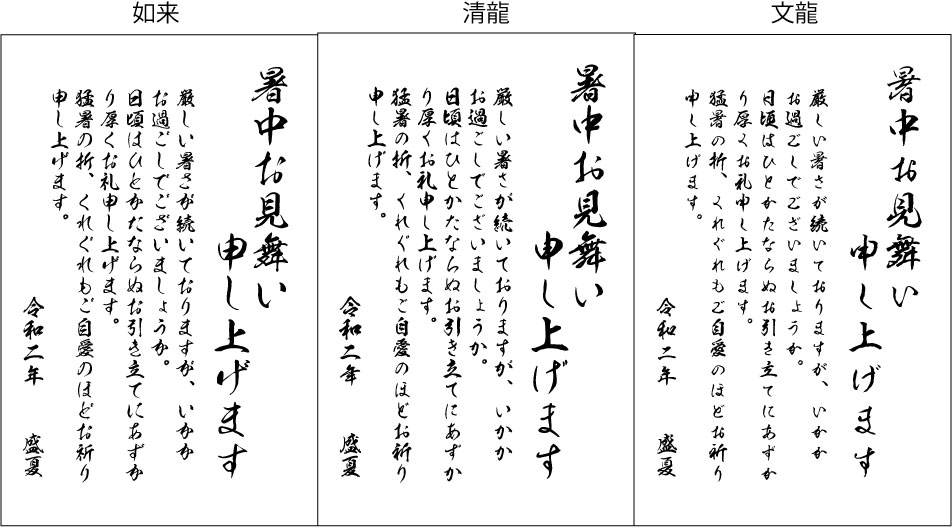 如来
暑中お見舞い
申し上げます
厳しい暑さが続いておりますが、いかか
お過ごしでございましょうか。
日頃はひとかたならぬお引き立てにあずか
り厚くお礼申し上げます。
猛暑の折、くれぐれもご自愛のほどお祈り
申し上げます。
令和二年　盛夏
清龍
暑中お見舞い
申し上げます
厳しい暑さが続いておりますが、いかか
お過ごしでございましょうか。
日頃はひとかたならぬお引き立てにあずか
り厚くお礼申し上げます。
猛暑の折、くれぐれもご自愛のほどお祈り
申し上げます。
令和二年　盛夏
文龍
暑中お見舞い
申し上げます
厳しい暑さが続いておりますが、いかか
お過ごしでございましょうか。
日頃はひとかたならぬお引き立てにあずか
り厚くお礼申し上げます。
猛暑の折、くれぐれもご自愛のほどお祈り
申し上げます。
令和二年　盛夏